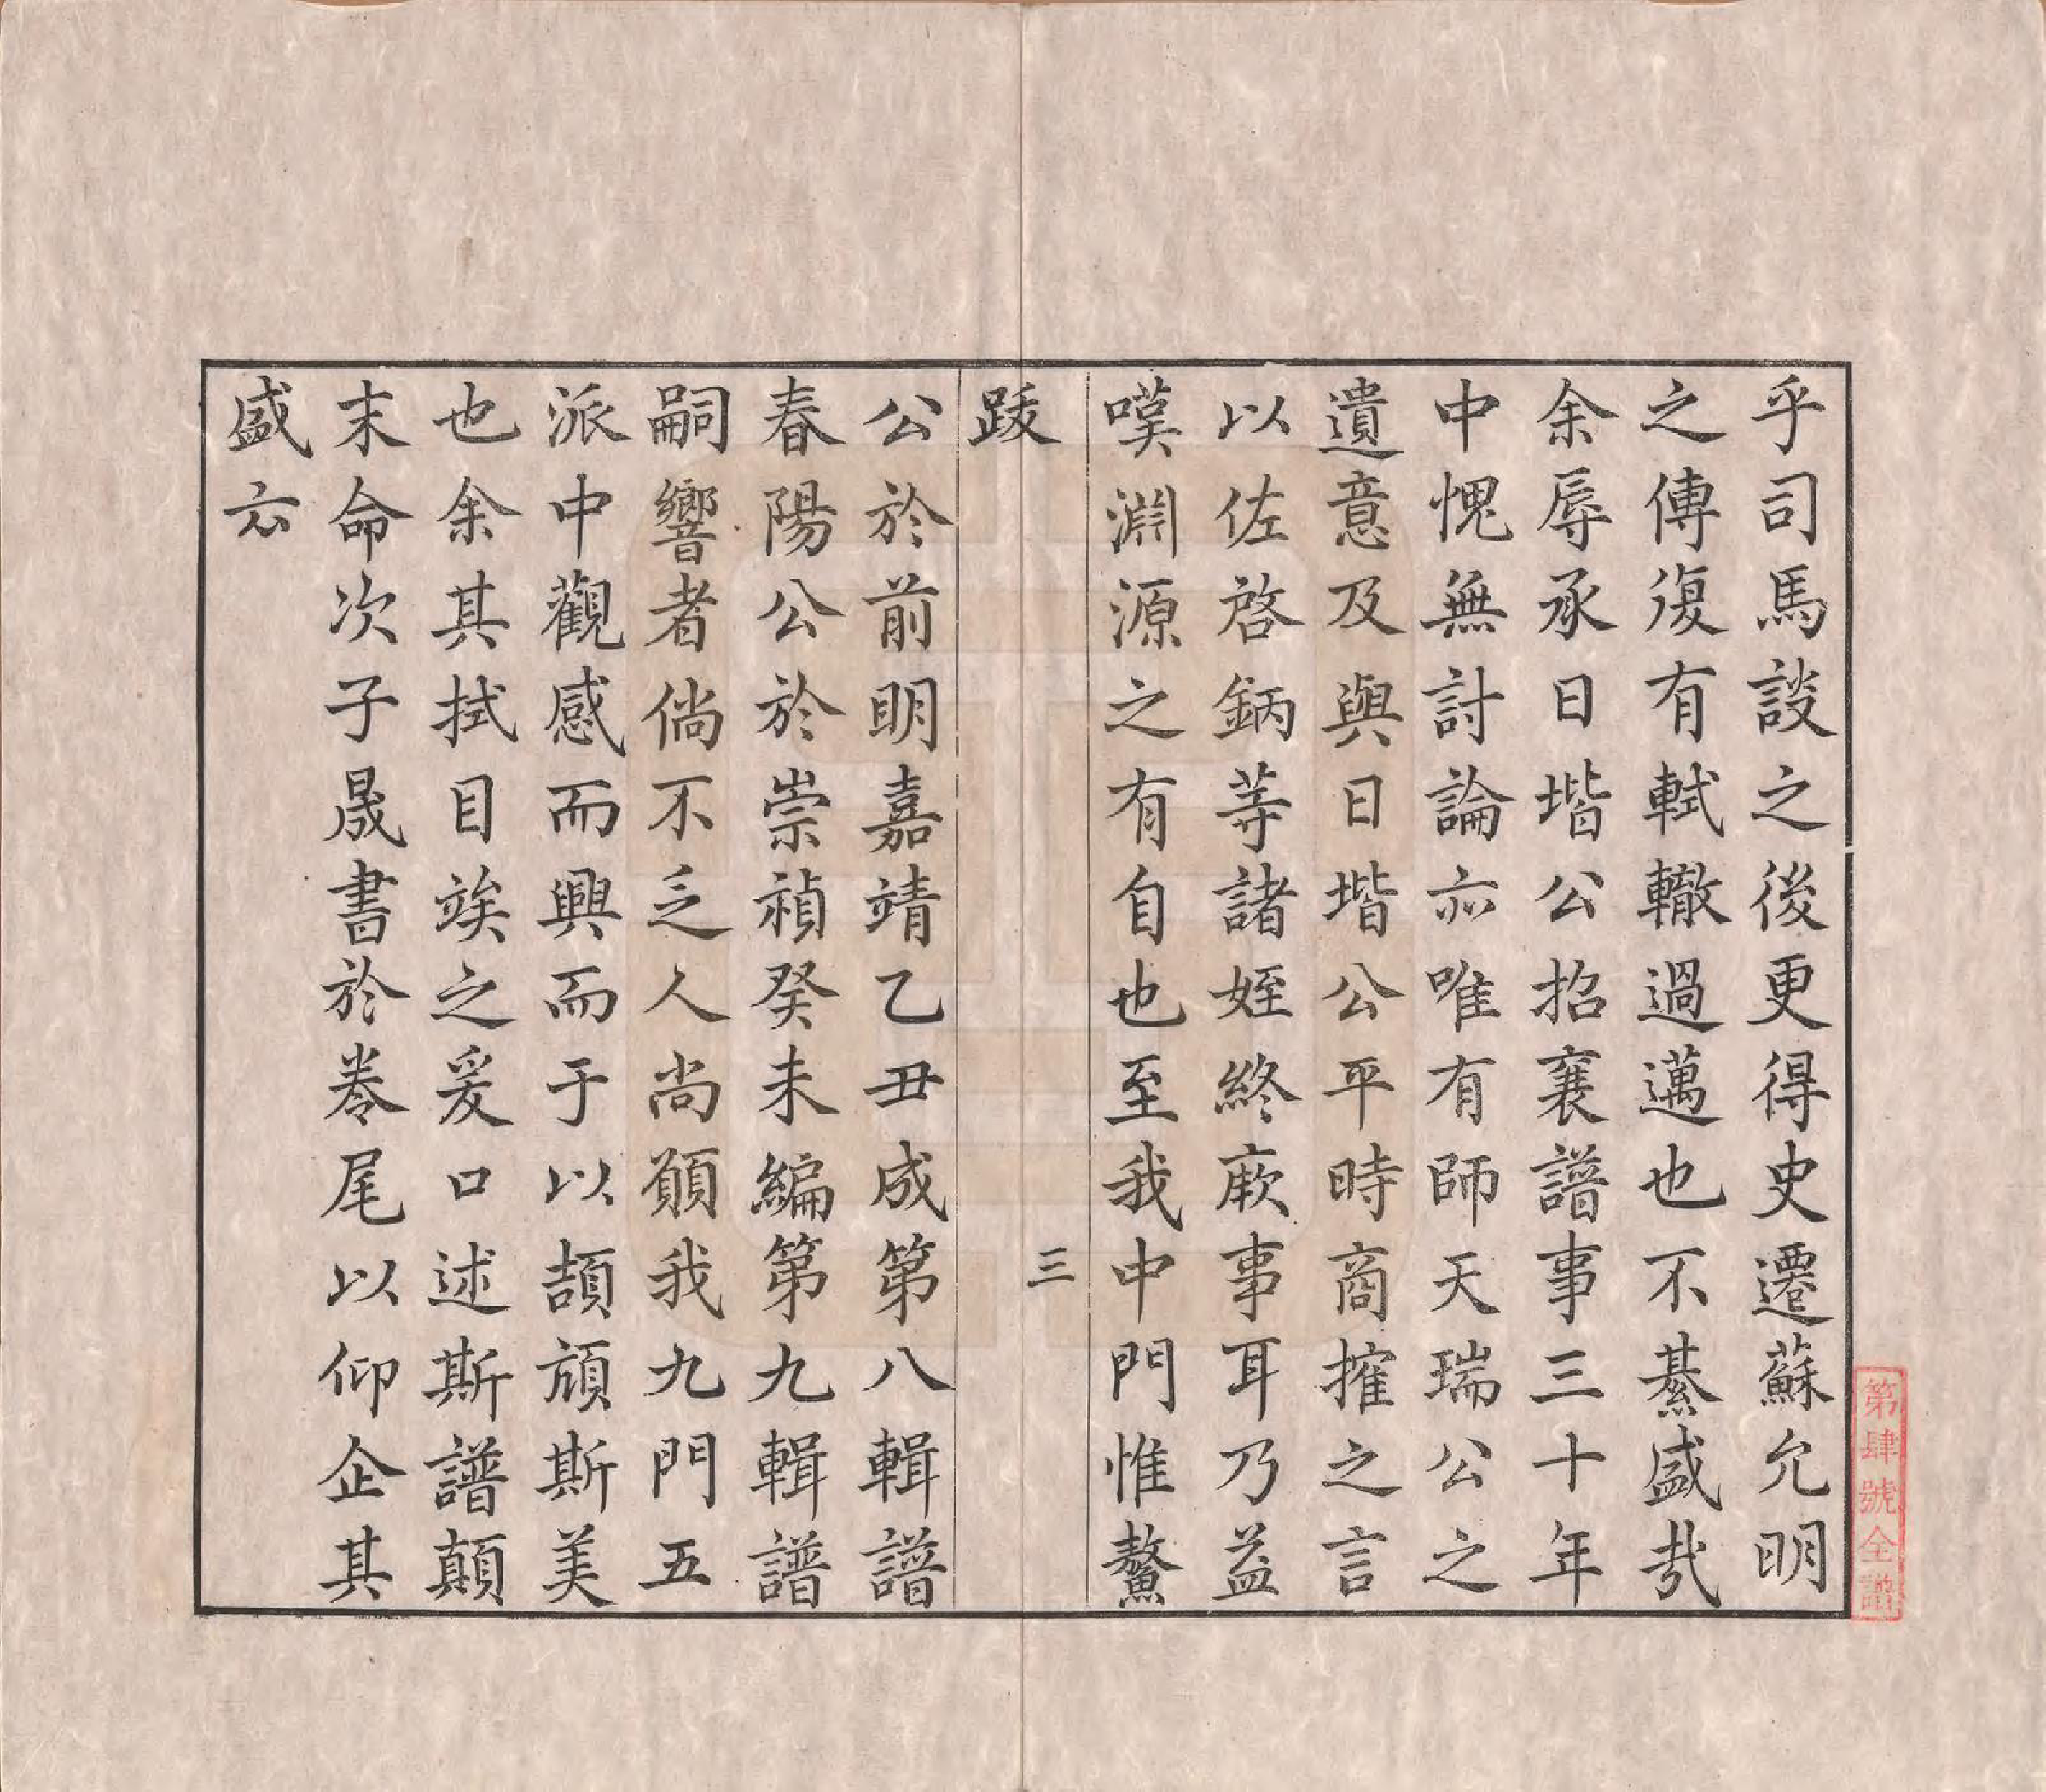 乎司馬談之後更得史遷蘇允明
之傳復有軾轍過邁也不綦盛哉
余辱承日堦公招襄譜事三十年
中愧無討論亦唯有師天瑞公之
遺意及與日堦公平時商搉之言
以佐啓鈵等諸姪終厥事耳乃益
嘆淵源之有自也至我中門惟鰲
跋
三
公於前明嘉靖乙丑成第八輯譜
春陽公於崇禎癸未編第九輯譜
嗣響者倘不乏人尚願我九門五
派中觀感而興而于以頡頏斯美
也余其拭目竢之爰口述斯譜顛
末命次子晟書於卷尾以仰企其
盛云
第肆號全譜